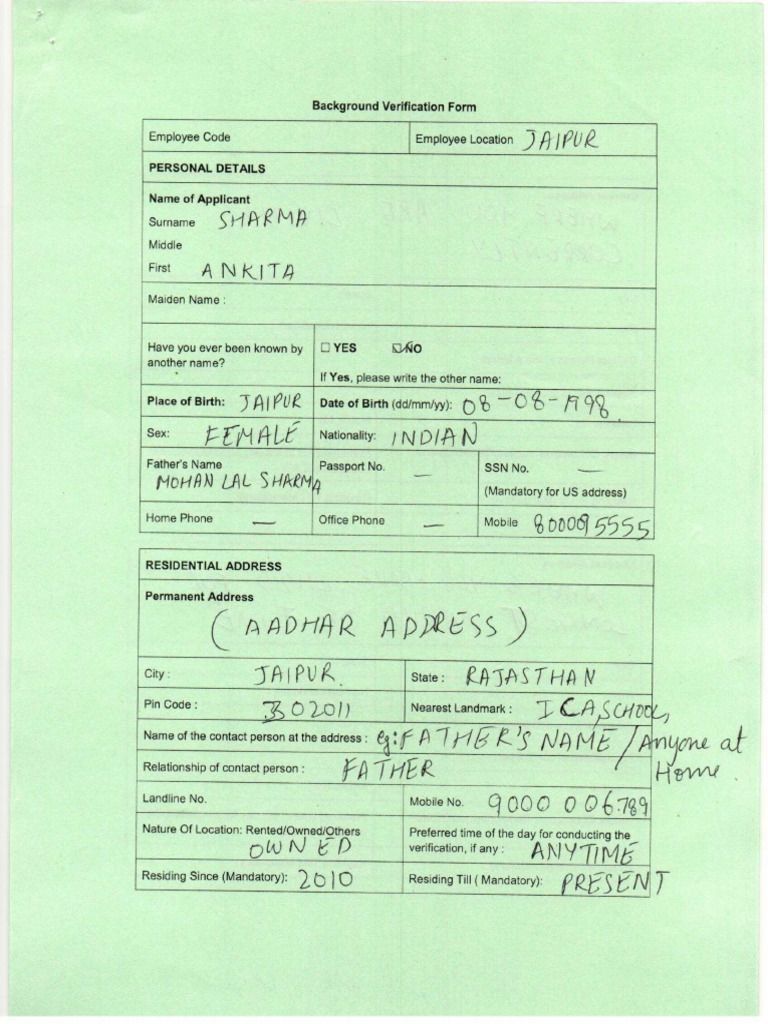 Background Verification Form
Employee Code
Employee Location JAIPUR
PERSONAL DETAILS
Name of Applicant
Surname SHARMA
Middle
First ANKITA
Maiden Name :
Have you ever been known by
another name?
☐ YES ☑ NO
If Yes, please write the other name:
Place of Birth: JAIPUR
Date of Birth (dd/mm/yy): 08-08-1998
Sex: FEMALE
Nationality: INDIAN
Father's Name
MOHAN LAL SHARMA
Passport No. —
SSN No. —
(Mandatory for US address)
Home Phone —
Office Phone —
Mobile 800095555
RESIDENTIAL ADDRESS
Permanent Address
(AADHAR ADDRESS)
City : JAIPUR.
State : RAJASTHAN
Pin Code : 302011
Nearest Landmark : ICA, SCHOOL,
Name of the contact person at the address : eg: FATHER'S NAME / Anyone at
Home.
Relationship of contact person : FATHER
Landline No.
Mobile No. 9000 006789
Nature Of Location: Rented/Owned/Others
OWNED
Preferred time of the day for conducting the
verification, if any : ANYTIME
Residing Since (Mandatory): 2010
Residing Till ( Mandatory): PRESENT